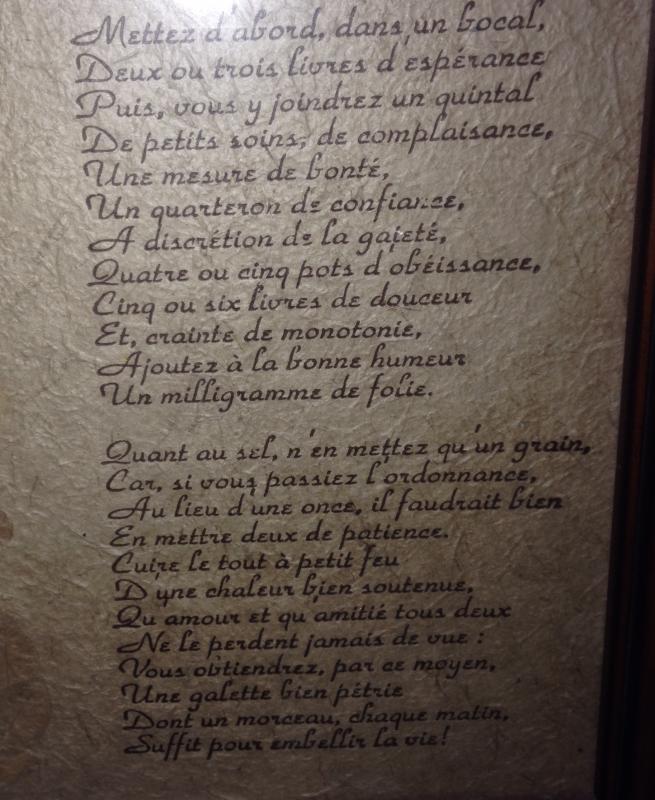 Mettez d'abord, dans un bocal,
Deux ou trois livres d'espérance
Puis, vous y joindrez un quintal
De petits soins, de complaisance,
Une mesure de bonté,
Un quarteron de confiance,
A discrétion de la gaieté,
Quatre ou cinq pots d'obéissance,
Cinq ou six livres de douceur
Et, crainte de monotonie,
Ajoutez à la bonne humeur
Un milligramme de folie.
Quant au sel, n'en mettez qu'un grain,
Car, si vous passiez l'ordonnance,
Au lieu d'une once, il faudrait bien
En mettre deux de patience.
Cuire le tout à petit feu
D'une chaleur bien soutenue,
Qu'amour et qu'amitié tous deux
Ne le perdent jamais de vue :
Vous obtiendrez, par ce moyen,
Une galette bien pétrie
Dont un morceau, chaque matin,
Suffit pour embellir la vie!